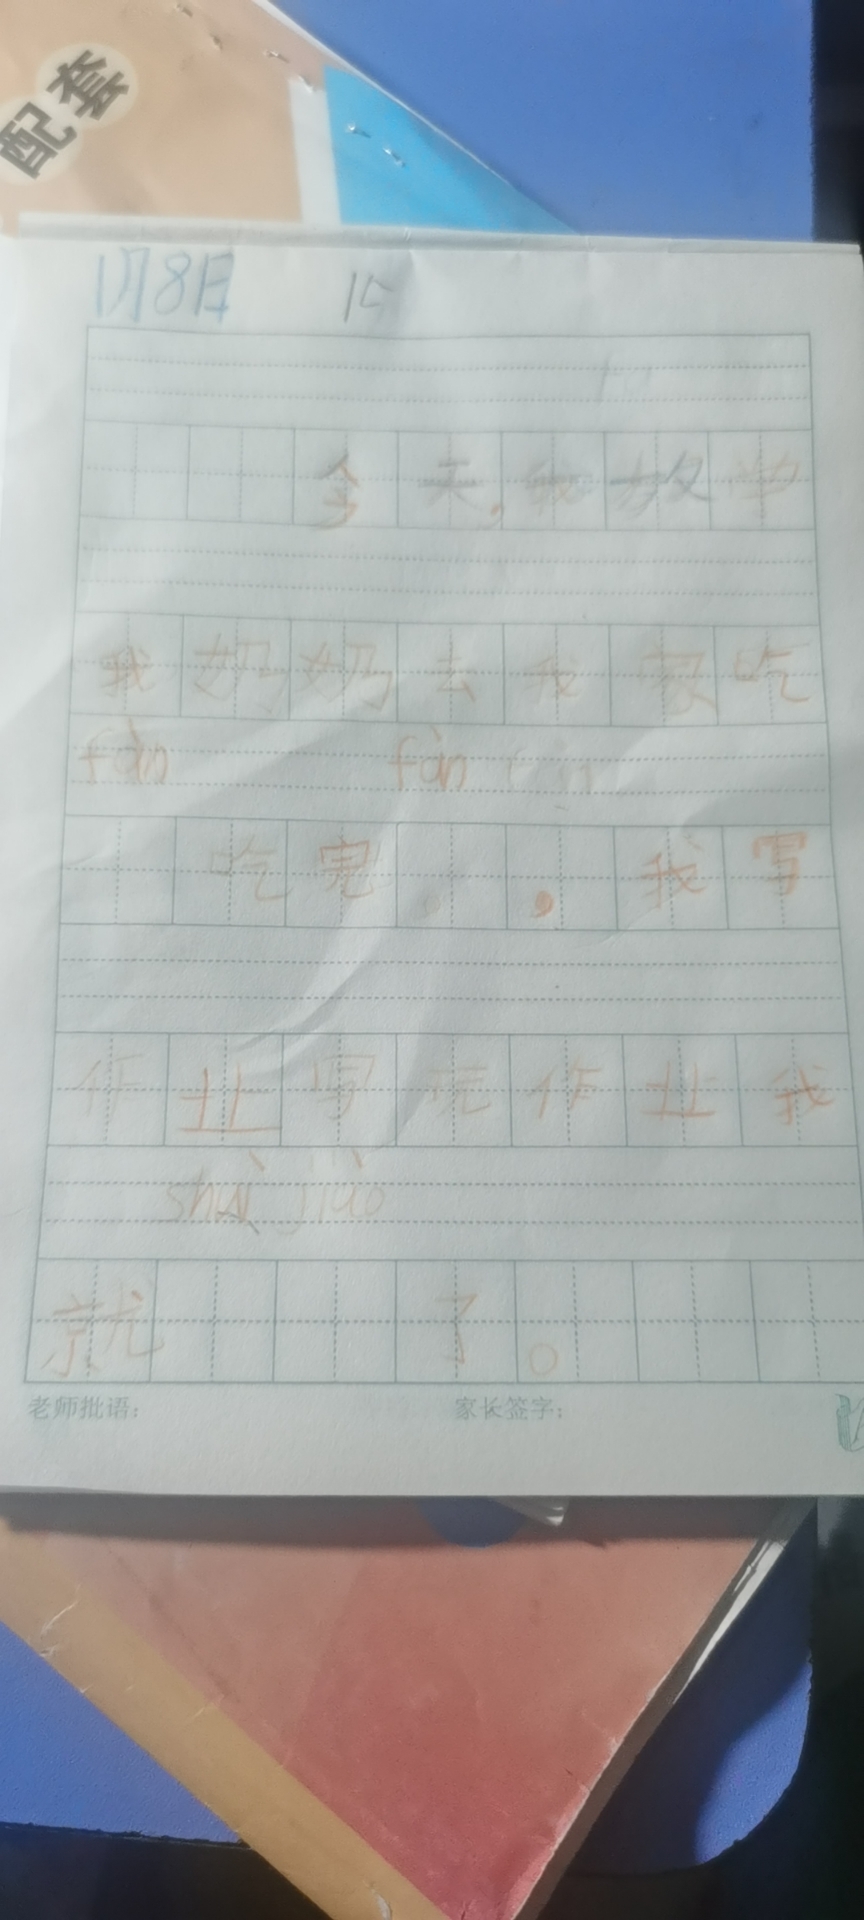 配套
1月8日
今天,我放学
我妈妈去我家吃
fàn fàn
吃完。,我写
作业写完作业我
shuì jiào
就 了。
老师批语:
家长签字: